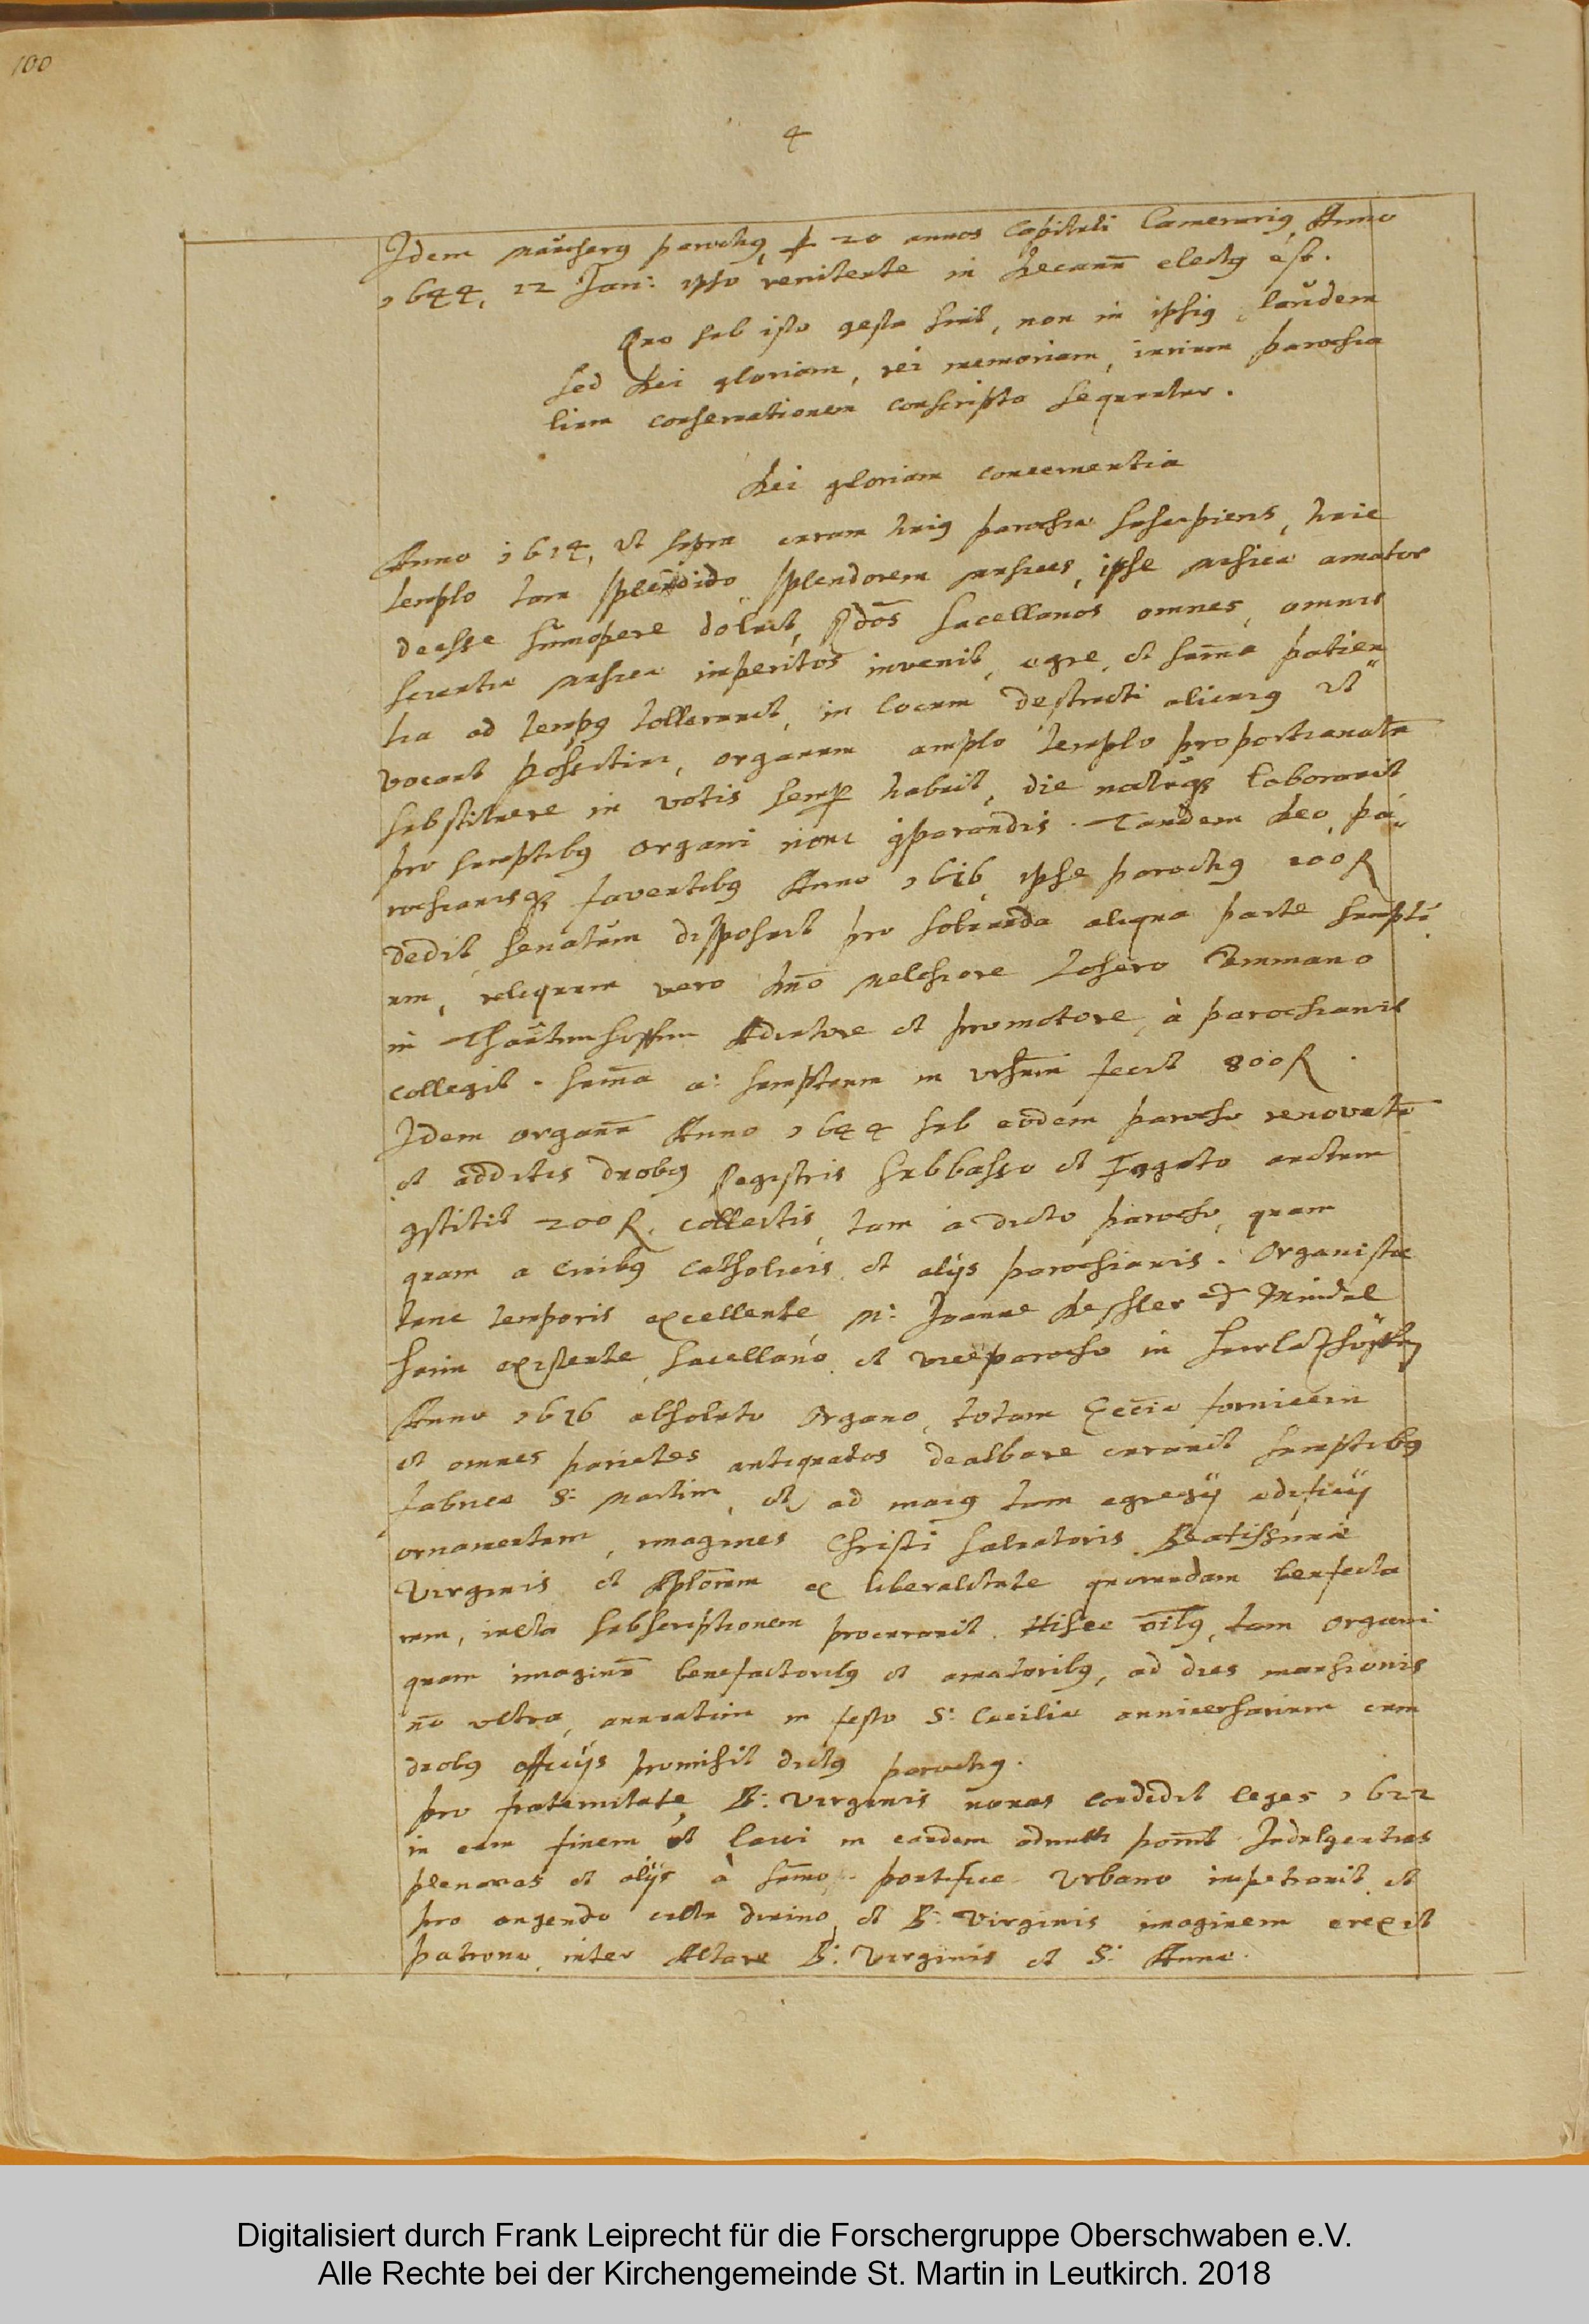 100
4
Idem parochus 20 annos Capituli Camerarius, Anno
1644, 22 Jan: ipso renitente in Decanū electus est.
Quo sub isto gesta sint, non in ipsius laudem
sed Dei gloriam, rei memoriam, iurium parochia
lium conservationem conscripto sequuntur.
Dei gloriam concernentia
Anno 1614, ut supra curam huius parochiæ suscipiens, huic
templo tam splendido splendorem musices, ipse musicæ amator
deesse sum̄opere doluit, Sacellanos omnes, omnis
scientiæ musicæ imperitos invenit, ægre, et sum̄a patien
tia ad tempus tolleravit, in locum destructi alicuius ut
vocant possitivi, organum amplo templo proportionatū
substituere in votis semper habuit, die noctuq; laboravit
pro sumptibus organi novi comparandis. Tandem Deo, pa
rochianisq; faventibus Anno 1616 ipse parochus 200 R
dedit, senatum disposuit pro solvenda aliqua parte sumptu
um, reliquum vero Dn̄o Melchiore Ammano
in adiutore et promotore, à parochianis
collegit. Sum̄a a: sumptuum in universum fecit 800 R.
Idem organū Anno 1644 sub eodem parocho renovatū
et additis duobus Registris Subbasso et auctum
constitit 200 R. collectis, tam a dicto parocho, quam
quam a civibus catholicis et alijs parochianis. Organista
tunc temporis excellente, M: Joanne Kessler Mindel
haim existente, sacellano et viceparocho in
Anno 1616 absoluto organo, totam Eccīæ fornicem
et omnes parietes antiquatos dealbare curavit sumptibus
fabricæ S: Martini, et ad maius tum egregij ædificij
ornamentum, imagines Christi Salvatoris Beatissimæ
Virginis et Aplōrum ex liberalitate quorundam benefacto
rum, iuxta subscriptionem procuravit. Hisce oībus, tam organi
quam imaginū benefactoribus et amatoribus, ad dies mansionis
nō ultra, annuatim in festo S: Cæciliæ anniversarium cum
duobus officijs promisit dictus parochus.
Pro fraternitate B: Virginis novas condidit leges 1622
in eum finem ut laici in eandem admitti Indulgentias
plenarias et alijs à sum̄o pontifice Urbano impetravit et
pro augendo cultu divino et B: Virginis imaginem erexit
patronæ inter Altare B: Virginis et S: Annæ.
Digitalisiert durch Frank Leiprecht für die Forschergruppe Oberschwaben e.V.
Alle Rechte bei der Kirchengemeinde St. Martin in Leutkirch. 2018